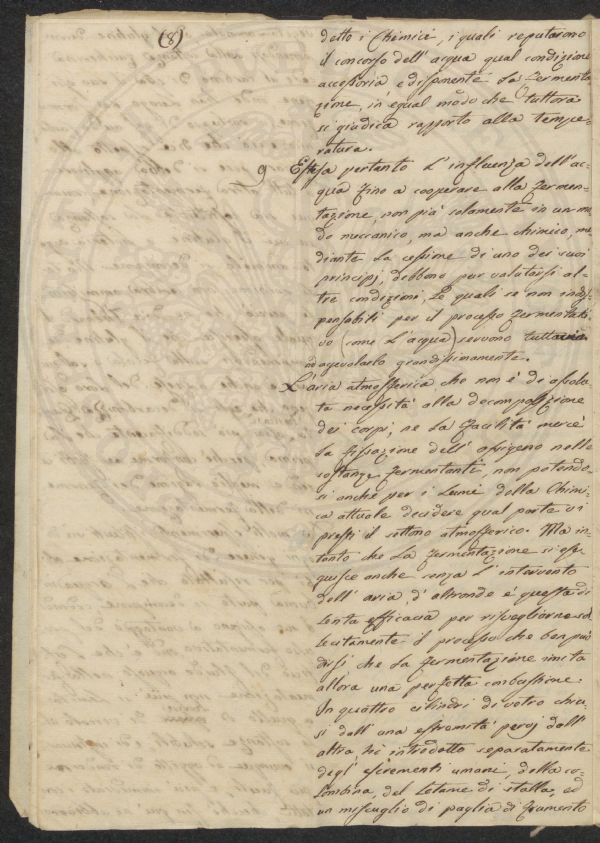 (8)
detto i Chimici, i quali reputarono
il concorso dell'acqua qual condizione
accessoria e disponente la fermenta
zione, in egual modo che tuttora
si giudica rapporto alla tempe-
ratura.
9 Estesa pertanto l'influenza dell'ac-
qua fino a cooperare alla fermen-
tazione, non più solamente in un mo
do meccanico, ma anche chimico, me
diante la cessione di uno dei suoi
principj, debbono pur valutarsi al-
tre condizioni, le quali se non indis-
pensabili per il processo fermentati
vo (come l'acqua) servono tuttavia
ad agevolarlo grandissimamente.
L'aria atmosferica che non è di assolu
ta necessità alla decomposizione
dei corpi, ne la facilità mercè
la fissazione dell'ossigeno nelle
sostanze fermentanti non potendo-
si anche per i lumi della Chimi-
ca attuale decidere qual parte vi
presti il settono atmosferico. Ma in-
tanto che la fermentazione si ese-
guisce anche senza l'intervento
dell'aria, d'altronde è questa di
tanta efficacia per risvegliarne sol
lecitamente il processo che ben può
dirsi che la fermentazione imita
allora una perfetta combustione.
In quattro cilindri di vetro chiu
si dall'una estremità però dall'
altra hò introdotto separatamente
degl'escrementi umani, della co-
lombina, del letame di stalla, ed
un miscuglio di paglia di frumento